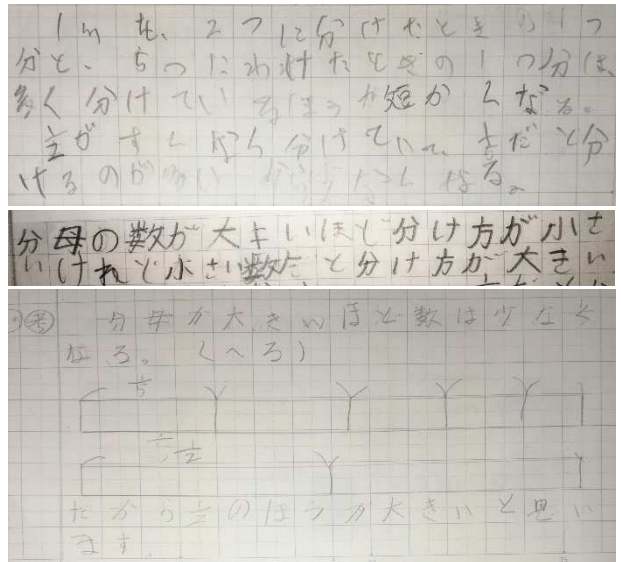 1mを、2つに分けたときの1つ
分と、5つにわけたときの1つ分は、
多く分けているほうが短かくなる。
1/2がすくなく分けていて、1/5だと分
けるのが 少なくなる。
分母の数が大きいほど分け方が小さ
いけれど小さい数だと分け方が大きい
考 分母が大きいほど数は少なく
なる。(へる)
1/5
1/2
だから1/2のほうが大きいと思い
ます。